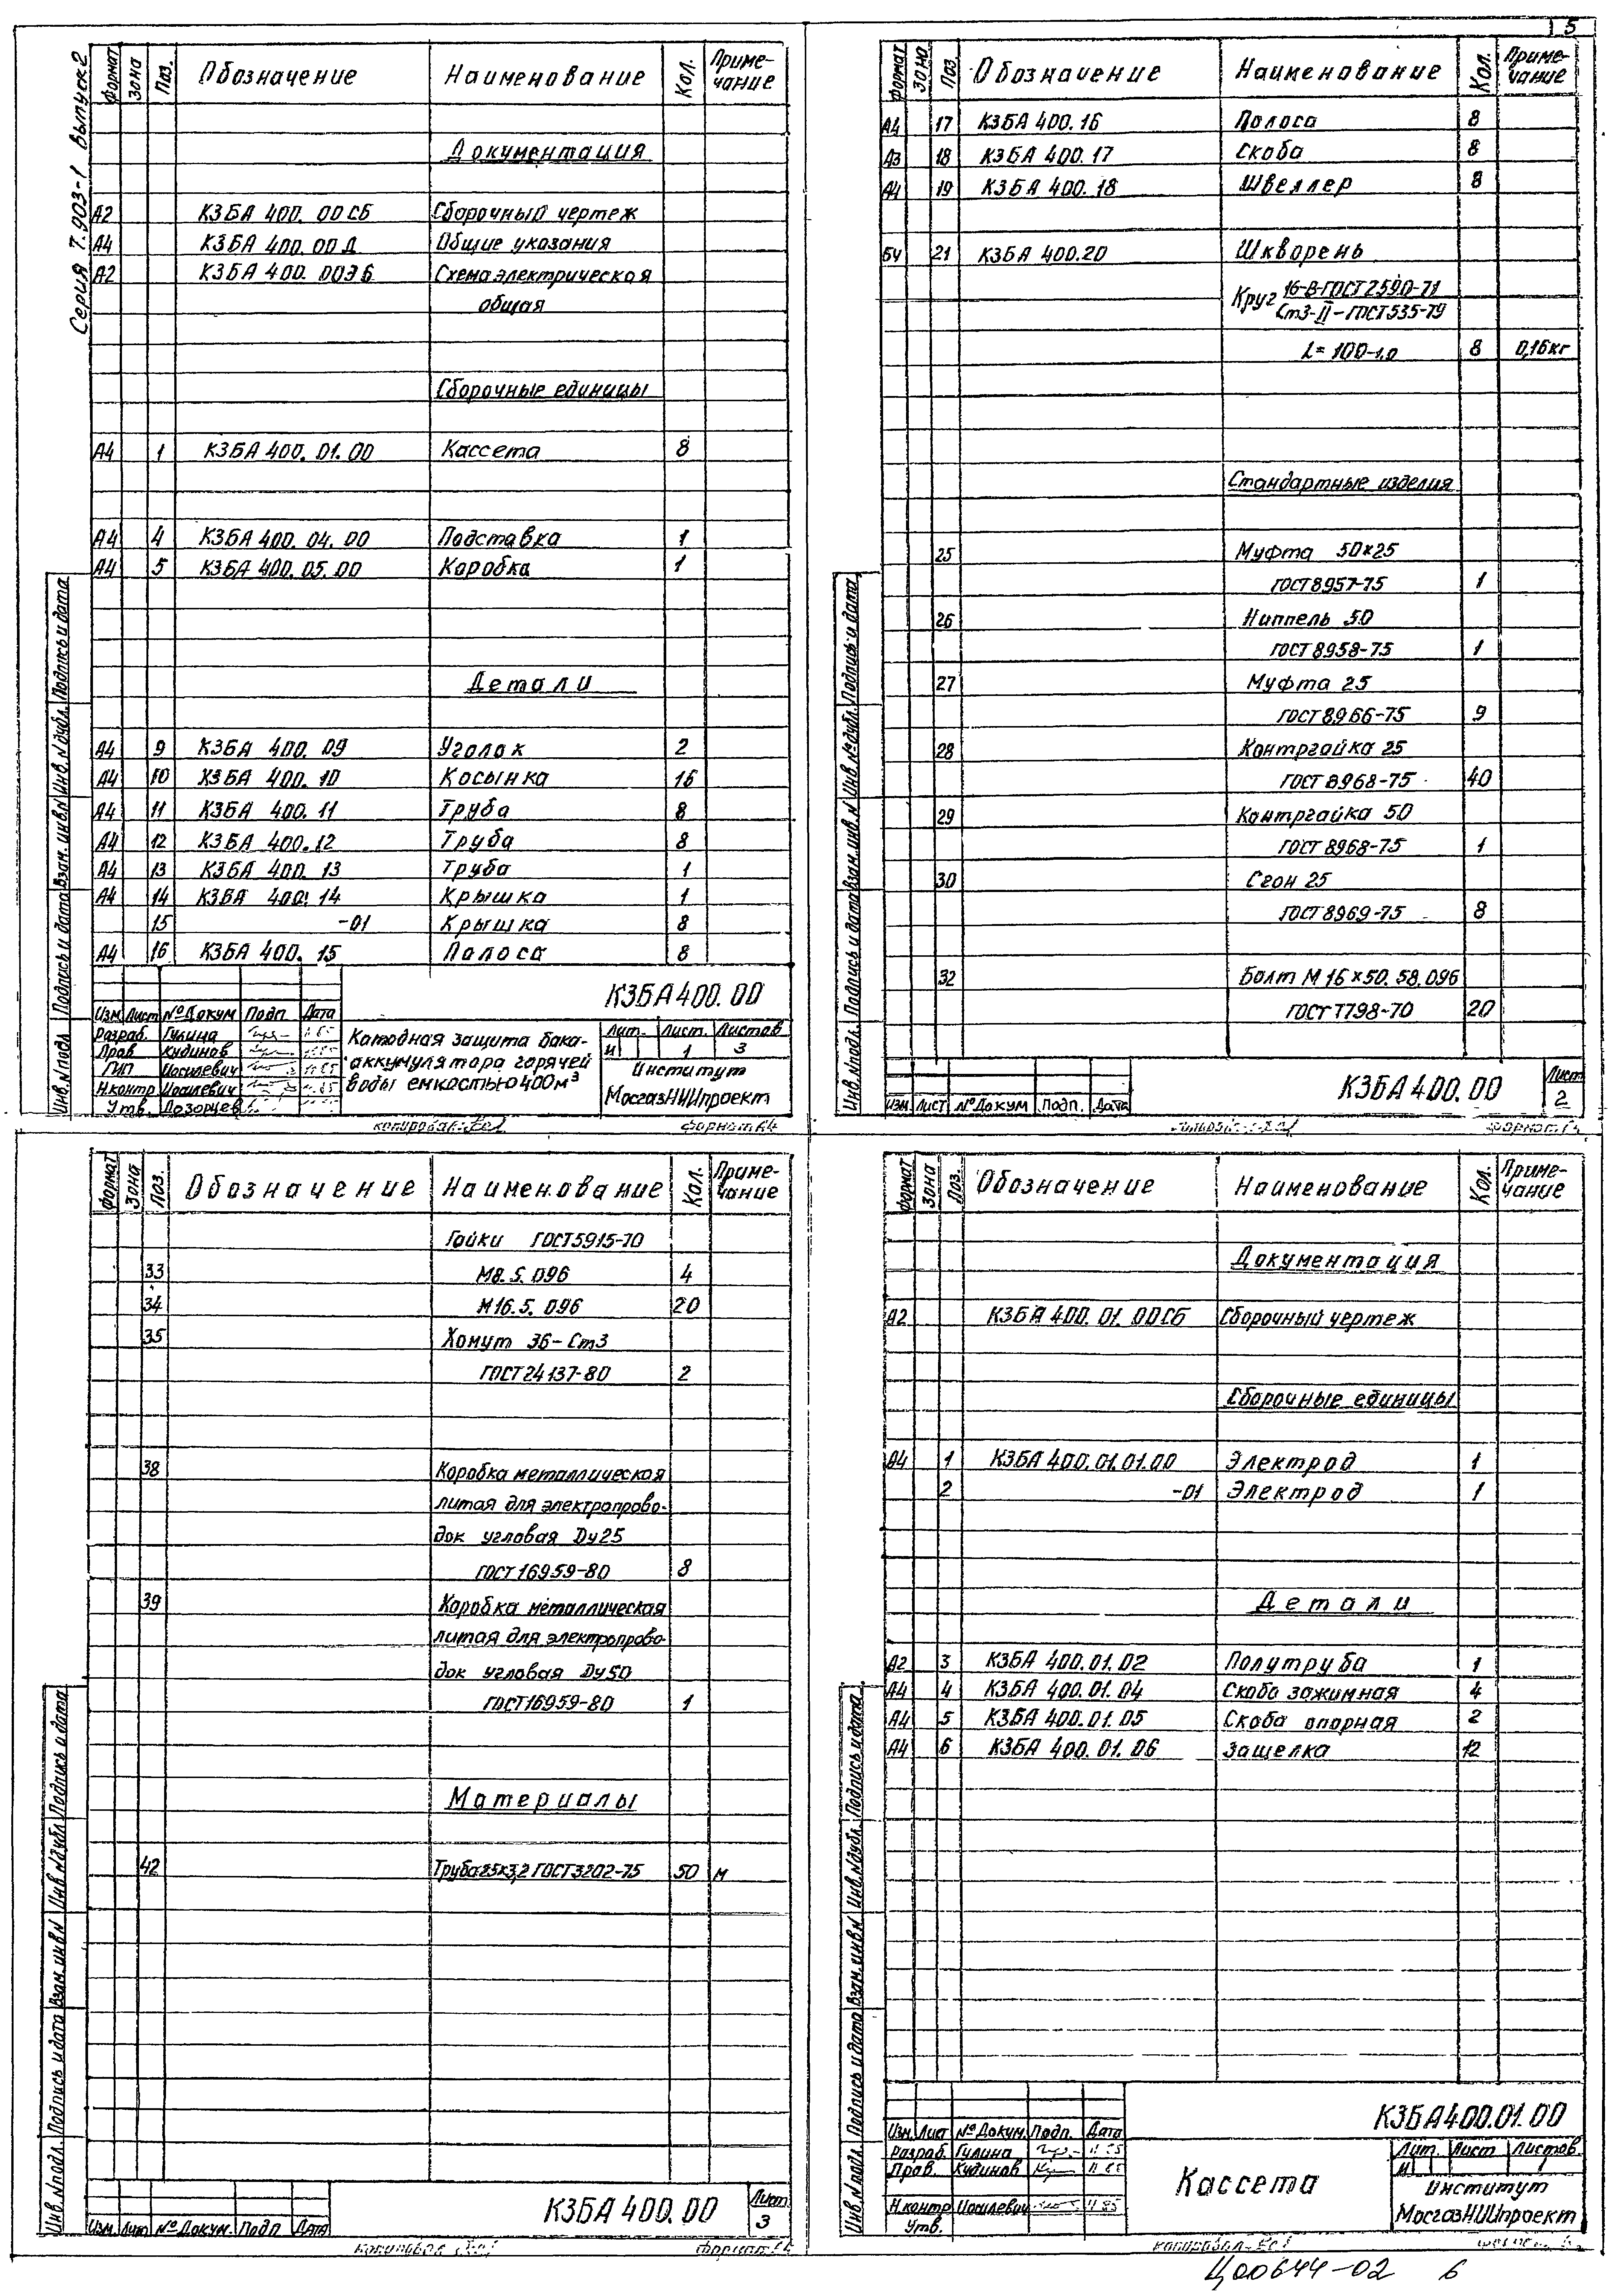 5
Серия 7.903-1 Выпуск 2
Формат Зона Поз. Обозначение Наименование Кол. Приме-чание
Документация
А2 КЗБА 400.00СБ Сборочный чертеж
А4 КЗБА 400.00Д Общие указания
А2 КЗБА 400.00Э6 Схема электрическая
общая
Сборочные единицы
А4 1 КЗБА 400.01.00 Кассета 8
А4 4 КЗБА 400.04.00 Подставка 1
А4 5 КЗБА 400.05.00 Коробка 1
Детали
А4 9 КЗБА 400.09 Уголок 2
А4 10 КЗБА 400.10 Косынка 16
А4 11 КЗБА 400.11 Труба 8
А4 12 КЗБА 400.12 Труба 8
А4 13 КЗБА 400.13 Труба 1
А4 14 КЗБА 400.14 Крышка 1
15 -01 Крышка 8
А4 16 КЗБА 400.15 Полоса 8
КЗБА 400.00
Изм. Лист №Докум Подп. Дата
Разраб. Гулина 11.85
Пров Кудинов
ГИП Иосилевич 11.85
Н.контр Иосилевич 11.85
Утв. Дозорцев
Катодная защита бака-
аккумулятора горячей
воды емкостью 400м³
Лит. Лист. Листов
И 1 3
Институт
МосгазНИИпроект
Инв.№подл. Подпись и дата Взам.инв.№ Инв.№дубл. Подпись и дата
Копировал Формат А4
Формат Зона Поз Обозначение Наименование Кол. Приме-чание
А4 17 КЗБА 400.16 Полоса 8
А3 18 КЗБА 400.17 Скоба 8
А4 19 КЗБА 400.18 Швеллер 8
БЧ 21 КЗБА 400.20 Шкворень
Круг 16-В-ГОСТ 2590-71
Ст3-II-ГОСТ 535-79
L=100-1,0 8 0,16кг
Стандартные изделия
25 Муфта 50×25
ГОСТ 8957-75 1
26 Ниппель 50
ГОСТ 8958-75 1
27 Муфта 25
ГОСТ 8966-75 9
28 Контргайка 25
ГОСТ 8968-75 40
29 Контргайка 50
ГОСТ 8968-75 1
30 Сгон 25
ГОСТ 8969-75 8
32 Болт М16×50.58.096
ГОСТ 7798-70 20
Изм. Лист №Докум Подп. Дата
КЗБА 400.00
Лист
2
Инв.№подл. Подпись и дата Взам.инв.№ Инв.№дубл. Подпись и дата
Формат Зона Поз. Обозначение Наименование Кол. Приме-чание
Гайки ГОСТ 5915-70
33 М8.5.096 4
34 М16.5.096 20
35 Хомут 36-Ст3
ГОСТ 24137-80 2
38 Коробка металлическая
литая для электропрово-
док угловая Ду25
ГОСТ 16959-80 8
39 Коробка металлическая
литая для электропрово-
док угловая Ду50
ГОСТ 16959-80 1
Материалы
42 Труба 25×3,2 ГОСТ 3202-75 50 м
Изм. Лист №Докум. Подп Дата
КЗБА 400.00
Лист
3
Инв.№подл. Подпись и дата Взам.инв.№ Инв.№дубл. Подпись и дата
Копировал Формат А4
Формат Зона Поз. Обозначение Наименование Кол. Приме-чание
Документация
А2 КЗБА 400.01.00СБ Сборочный чертеж
Сборочные единицы
А4 1 КЗБА 400.01.01.00 Электрод 1
2 -01 Электрод 1
Детали
А2 3 КЗБА 400.01.02 Полутруба 1
А4 4 КЗБА 400.01.04 Скоба зажимная 4
А4 5 КЗБА 400.01.05 Скоба опорная 2
А4 6 КЗБА 400.01.06 Защелка 12
КЗБА 400.01.00
Изм. Лист №Докум. Подп. Дата
Разраб. Гулина 11.85
Пров. Кудинов 11.85
Н.контр Иосилевич 11.85
Утв.
Кассета
Лит. Лист Листов.
И 1
Институт
МосгазНИИпроект
Инв.№подл. Подпись и дата Взам.инв.№ Инв.№дубл. Подпись и дата
Копировал
Ц00644-02 6